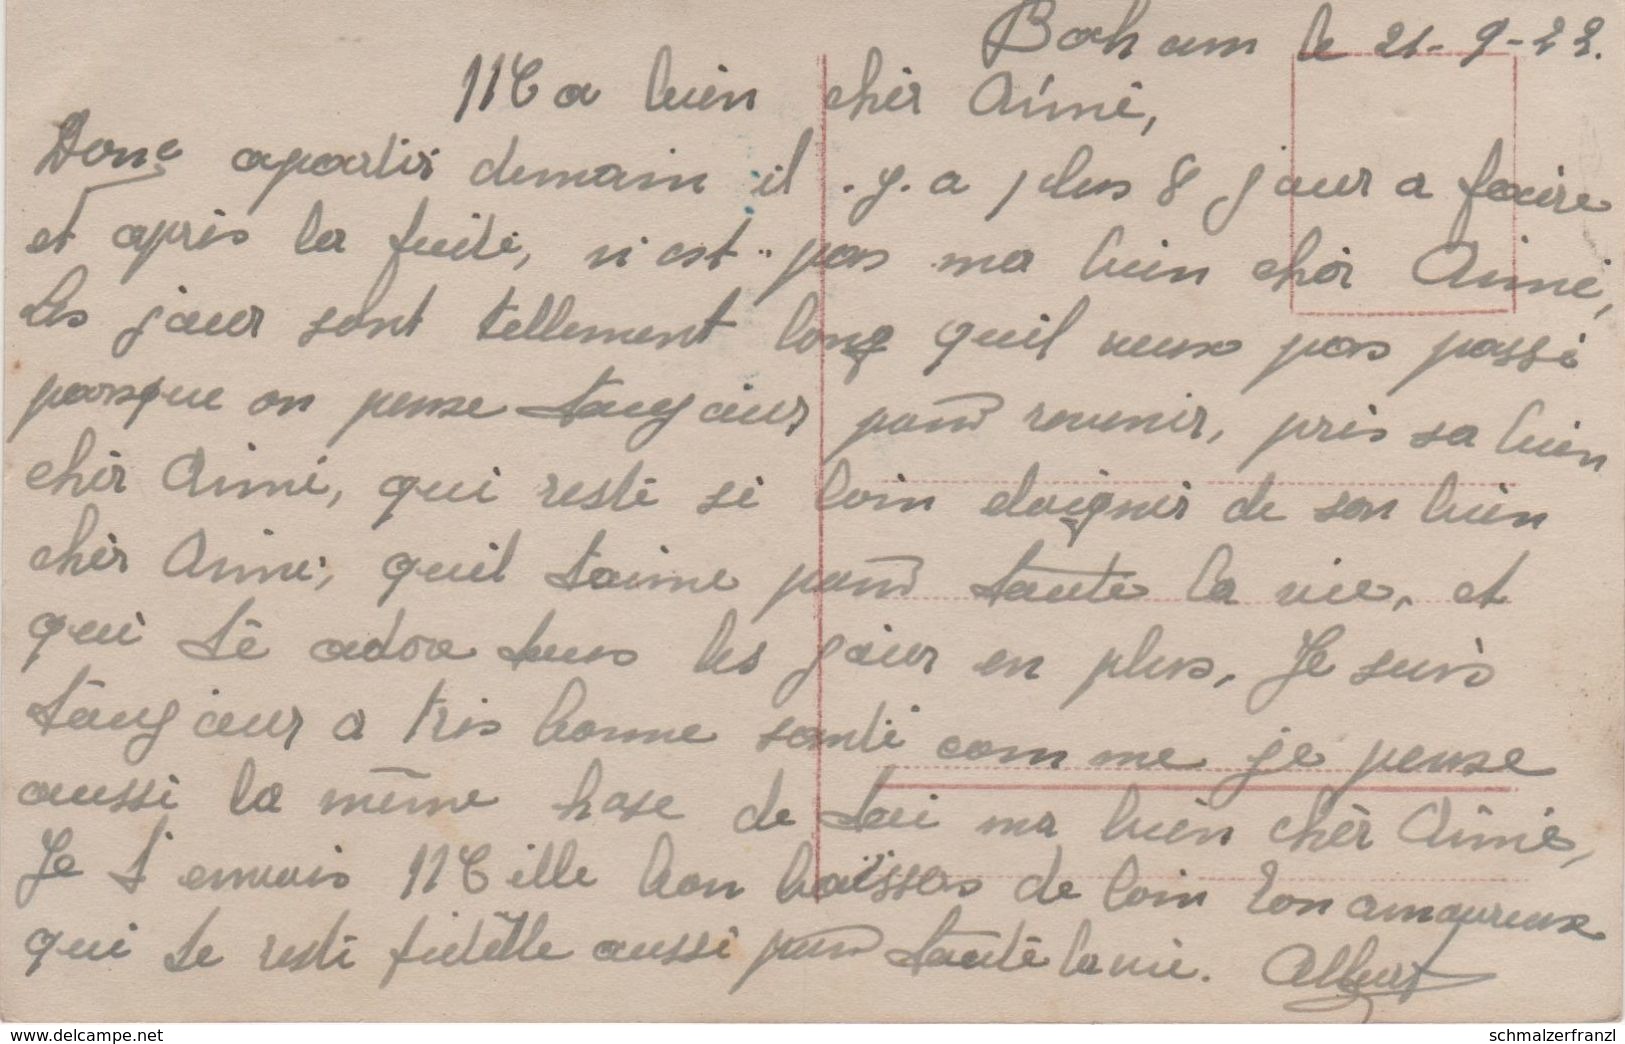 Bohain le 21-9-22.
Ma bien chèr Aimé,
Donc apartir demain il .y.a plus 8 jour a faire
et après la fuite, n'est-pas ma bien chèr Aimé,
Les jour sont tellement long quil veux pas passé
parsque on pense toujour, pour revenir, près sa bien
chèr Aimé, qui resté si loin eloigner de son bien
chèr Aimé, quil t'aime pour toute la vie, et
qui tê adore tous les jour en plus, Je suis
toujour a très bonne santé comme je pense
aussi la même chose de toi ma bien chèr Aimé,
Je t'envois Mille bon baïsses de loin ton amoureux
qui te resté fidèlle aussi pour toute la vie. Albert
delcampe.net
schmalzerfranzl